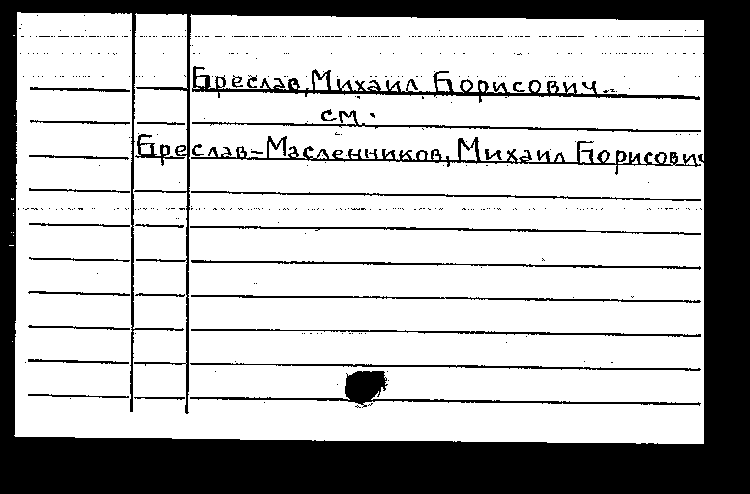 Бреслав, Михаил Борисович.
см.
Бреслав-Масленников, Михаил Борисович